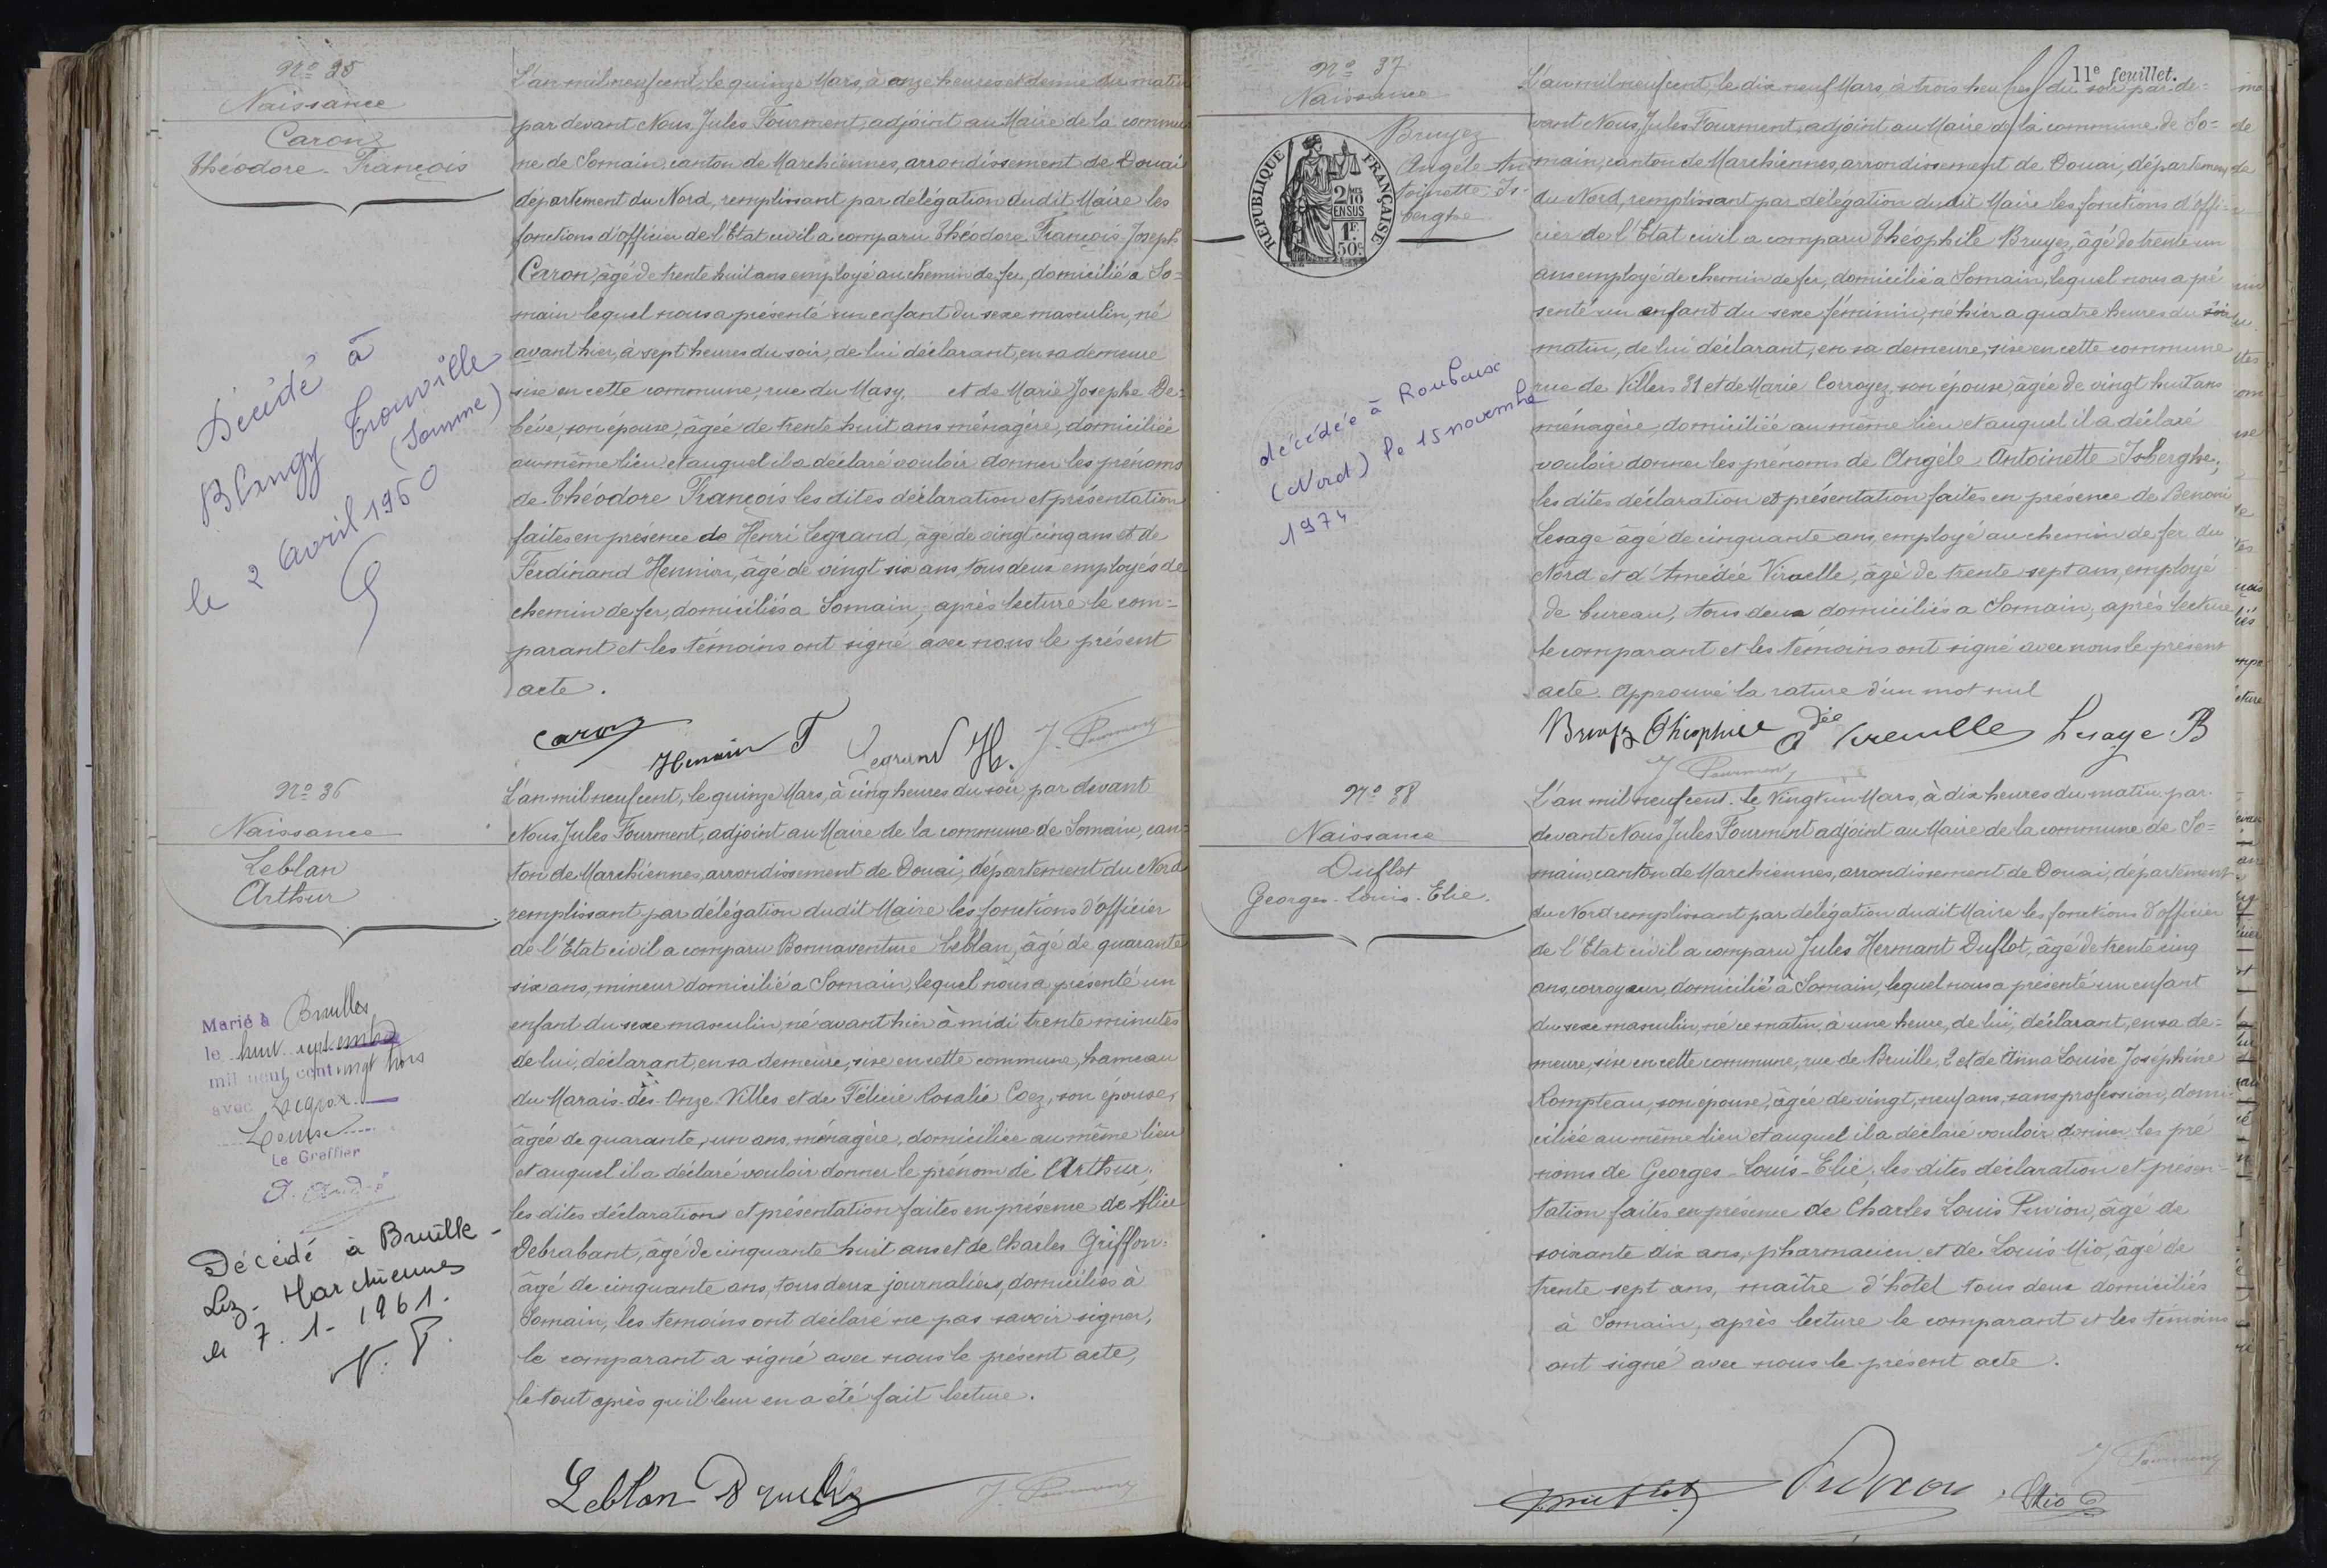 Nº 35
Naissance
Caron
Théodore. François
L'an mil neuf cent, le quinze Mars, à onze heures et demie du matin
par devant Nous, Jules Fourment, adjoint au Maire de la commu
ne de Somain, canton de Marchiennes, arrondissement de Douai
département du Nord, remplissant par délégation dudit Maire les
fonctions d'officier de l'Etat civil a comparu Théodore François Joseph
Caron, âgé de trente huit ans employé au chemin de fer, domicilié a So=
main lequel nous a présenté un enfant du sexe masculin, né
avant hier, à sept heures du soir, de lui déclarant, en sa demeure
sise en cette commune, rue du Masy, et de Marie Josephe De=
bève, son épouse, âgée de trente huit ans ménagère, domiciliée
au même lieu et auquel il a déclaré vouloir donner les prénoms
de Théodore François les dites déclaration et présentation
faites en présence de Henri Legrand, âgé de vingt cinq ans et de
Ferdinand Hennion, âgé de vingt six ans, tous deux employés de
chemin de fer, domiciliés a Somain, après lecture le com=
parant et les témoins ont signé avec nous le présent
acte.
Décédé à
Blangy Tronville
(Somme)
le 2 avril 1960
Caron
Legrand H.
J. Fourment
Nº 36
Naissance
Leblan
Arthur
L'an mil neuf cent, le quinze Mars, à cinq heures du soir, par devant
Nous Jules Fourment, adjoint au Maire de la commune de Somain, can=
ton de Marchiennes, arrondissement de Douai, département du Nord
remplissant par délégation dudit Maire les fonctions d'officier
de l'Etat civil a comparu Bonnaventure Leblan, âgé de quarante
six ans, mineur domicilié a Somain, lequel nous a présenté un
enfant du sexe masculin, né avant hier à midi trente minutes
de lui, déclarant, en sa demeure, sise en cette commune, hameau
du Marais-des-Onze-Villes et de Félicie Rosalie Coez, son épouse,
âgée de quarante, un ans, ménagère, domiciliée au même lieu
et auquel il a déclaré vouloir donner le prénom de Arthur,
les dites déclaration et présentation faites en présence de
Debrabant, âgé de cinquante huit ans et de Charles Griffon.
âgé de cinquante ans, tous deux journaliers, domiciliés à
Somain, les témoins ont déclaré ne pas savoir signer,
le comparant a signé avec nous le présent acte,
le tout après qu'il leur en a été fait lecture.
Marié à Bruilles
le huit septembre
mil neuf cent vingt trois
avec Legros
Louise
Le Greffier
A. André
Décédé à Bruille-
Lez-Marchiennes
le 7.1-1961.
Leblan
J. Fourment
11e feuillet.
Nº 37
Naissance
Bruyez
Angèle An
toinette Is-
berghe
REPUBLIQUE FRANÇAISE
2/10
EN SUS
1F.
50c
L'an mil neuf cent, le dix neuf Mars, à trois heures du soir par de=
vant Nous Jules Fourment, adjoint au Maire de la commune de So=
main, canton de Marchiennes, arrondissement de Douai, département
du Nord, remplissant par délégation dudit Maire les fonctions d'offi=
cier de l'Etat civil a comparu Théophile Bruyez, âgé de trente un
ans employé de chemin de fer, domicilié a Somain, lequel nous a pré
senté un enfant du sexe féminin, né hier a quatre heures du soir
matin, de lui déclarant, en sa demeure, sise en cette commune
rue de Villers 31 et de Marie Corroyez, son épouse, âgée de vingt huit ans
ménagère, domiciliée au même lieu et auquel il a déclaré
vouloir donner les prénoms de Angèle Antoinette Isberghe,
les dites déclaration et présentation faites en présence de Benoni
Lesage âgé de cinquante ans, employé au chemin de fer du
Nord et d'Amédée Viruelle, âgé de trente sept ans, employé
de bureau, tous deux domiciliés a Somain, après lecture
le comparant et les témoins ont signé avec nous le présent
acte. Approuvé la rature d'un mot nul
décédée à Roubaix
(Nord) le 15 novembre
1974
Bruyez Théophile
Lesage B
J Fourment
Nº 38
Naissance
Duflot
Georges-Louis-Elie.
L'an mil neuf cent. le Vingt un Mars, à dix heures du matin par.
devant Nous Jules Fourment adjoint au Maire de la commune de So=
main, canton de Marchiennes, arrondissement de Douai, département
du Nord remplissant par délégation dudit Maire les fonctions d'officier
de l'Etat civil a comparu Jules Hermant Duflot, âgé de trente cinq
ans, corroyeur, domicilié à Somain, lequel nous a présenté un enfant
du sexe masculin, né ce matin, à une heure, de lui, déclarant, en sa de=
meure, sise en cette commune, rue de Bruille, 2 et de Anna Louise Joséphine
Rompteau, son épouse, âgée de vingt, neuf ans, sans profession, domi
ciliée au même lieu et auquel il a déclaré vouloir donner les pré
noms de Georges-Louis-Elie, les dites déclaration et présen-
tation faites en présence de Charles Louis Puvion, âgé de
soixante dix ans, pharmacien et de Louis Mio, âgé de
trente sept ans, maître d'hôtel tous deux domiciliés
à Somain, après lecture le comparant et les témoins
ont signé avec nous le présent acte.
Duflot
Puvion
Mio
J Fourment